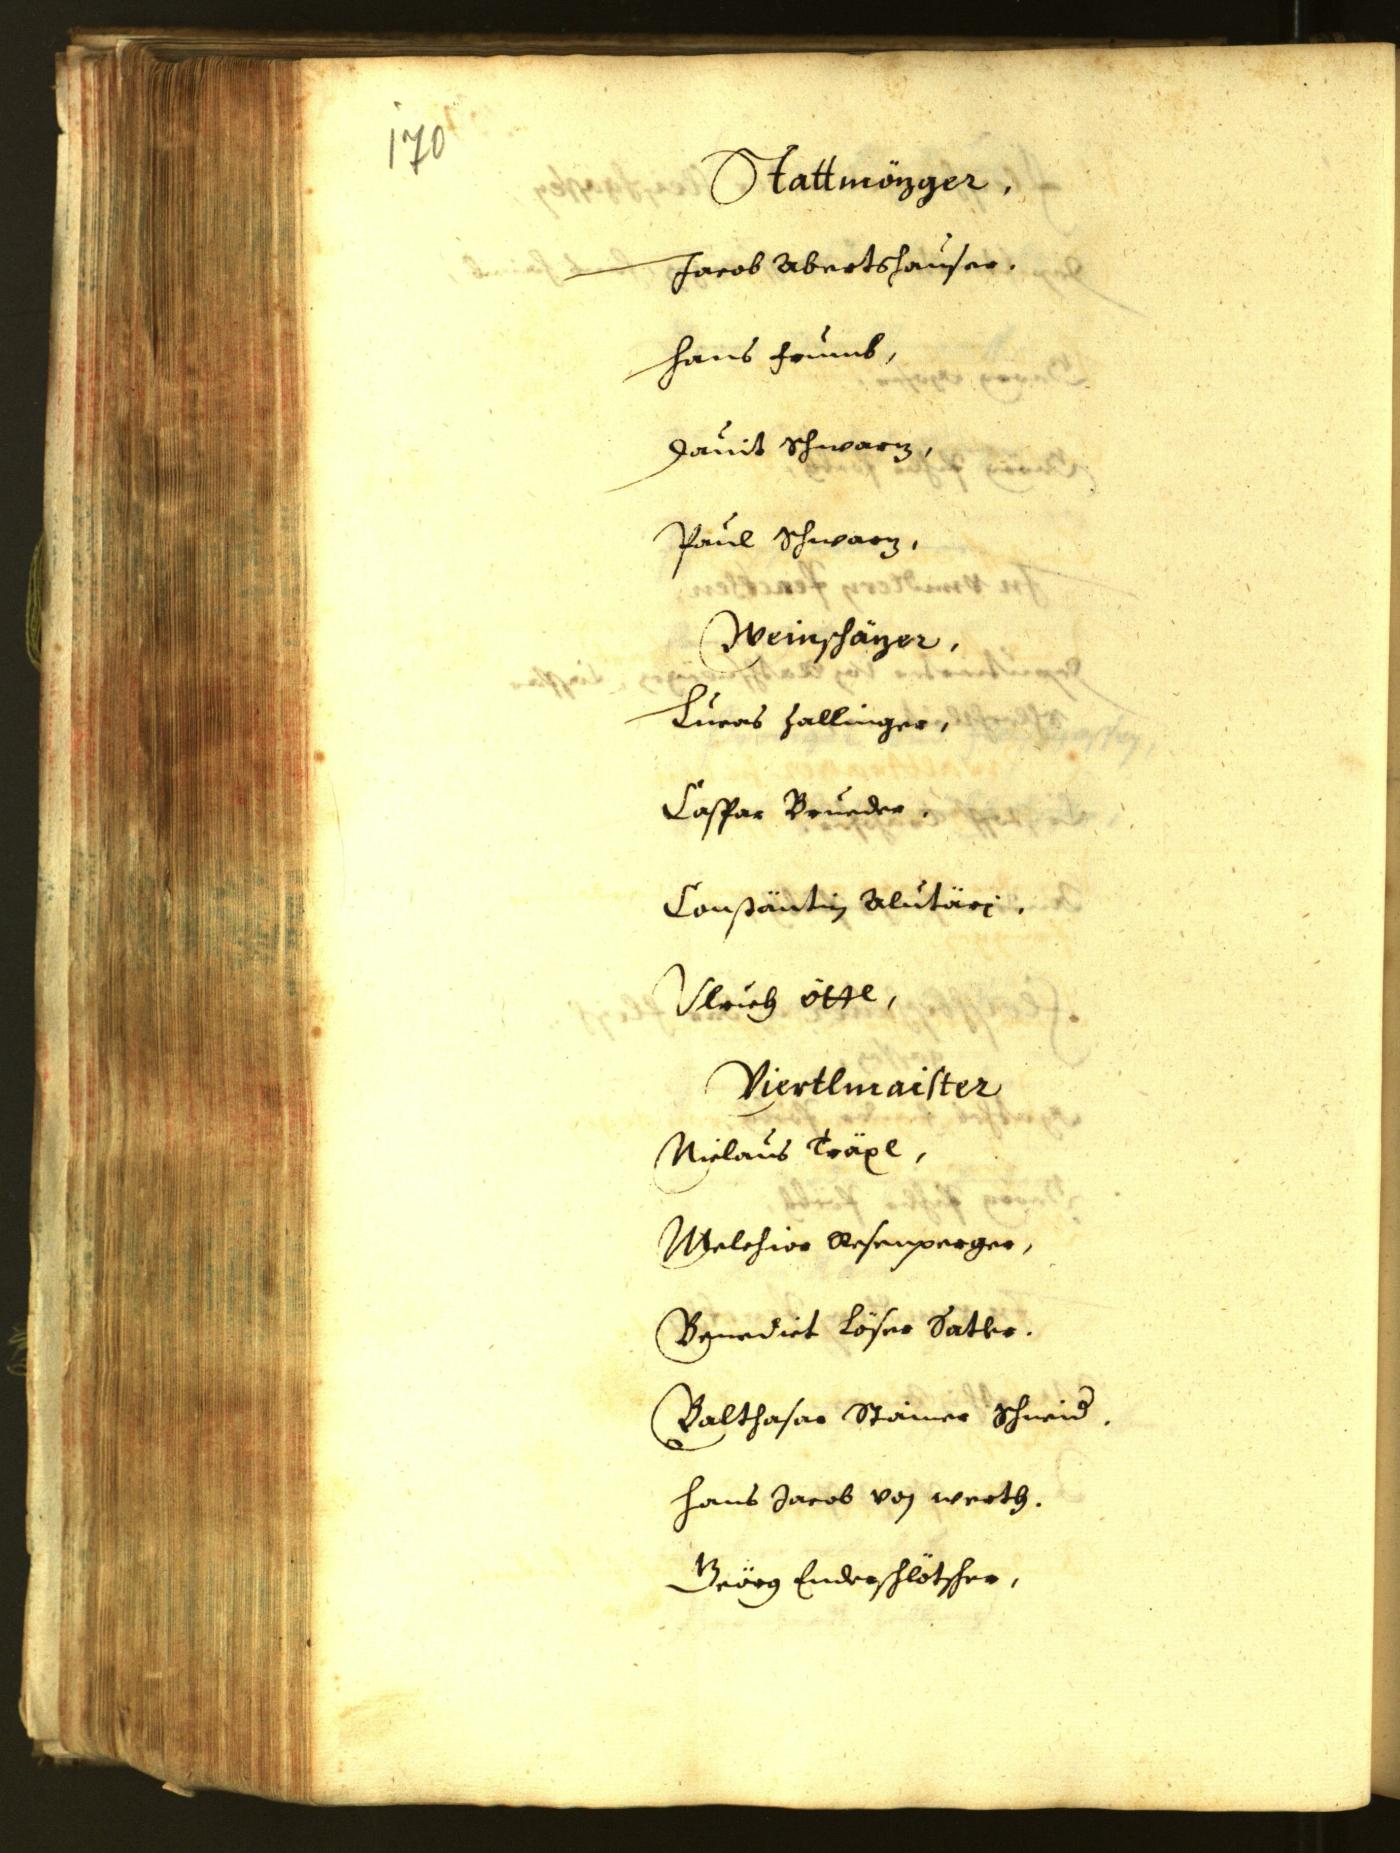 170
Stattmözger,
Jacob Abertshauser.
Hans Frumb,
Dauit Schwarz,
Paul Schwarz,
Weinschäzer,
Lucas Hallinger,
Caspar Brueder.
Constäntin Alutärj.
Vlrich Öttl,
Viertlmaister
Niclaus Träxl,
Melchior Resenperger,
Benedict Löser Satler.
Balthasar Stainer Schneid.
Hans Jacob von Werth.
Geörg Enderschlötscher,